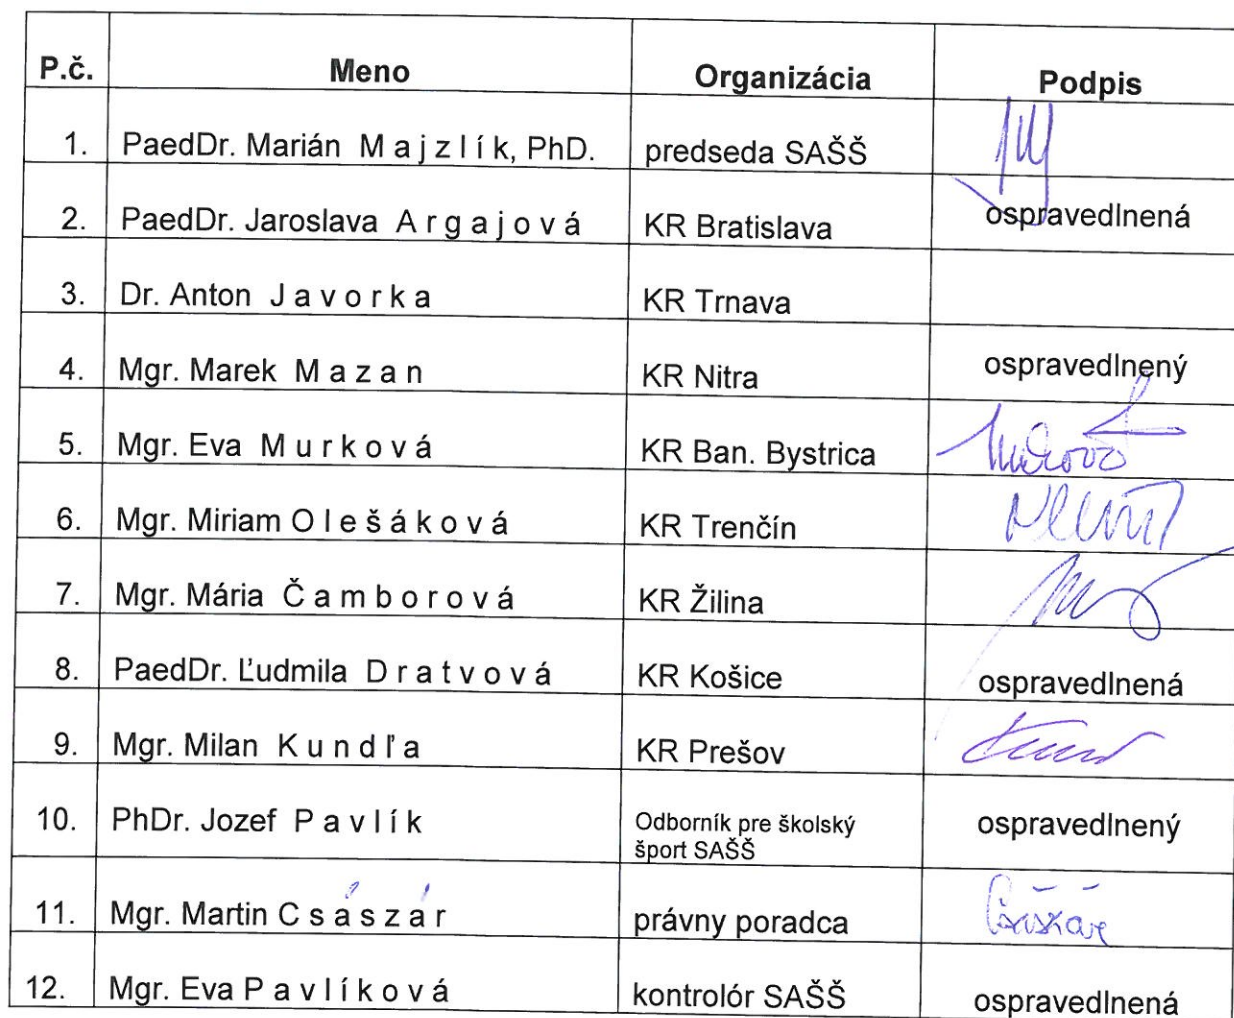 P.č. Meno Organizácia Podpis
1. PaedDr. Marián M a j z l í k, PhD. predseda SAŠŠ
2. PaedDr. Jaroslava A r g a j o v á KR Bratislava ospravedlnená
3. Dr. Anton J a v o r k a KR Trnava
4. Mgr. Marek M a z a n KR Nitra ospravedlnený
5. Mgr. Eva M u r k o v á KR Ban. Bystrica
6. Mgr. Miriam O l e š á k o v á KR Trenčín
7. Mgr. Mária Č a m b o r o v á KR Žilina
8. PaedDr. Ľudmila D r a t v o v á KR Košice ospravedlnená
9. Mgr. Milan K u n d ľ a KR Prešov
10. PhDr. Jozef P a v l í k Odborník pre školský ospravedlnený
šport SAŠŠ
11. Mgr. Martin C s á s z á r právny poradca
12. Mgr. Eva P a v l í k o v á kontrolór SAŠŠ ospravedlnená